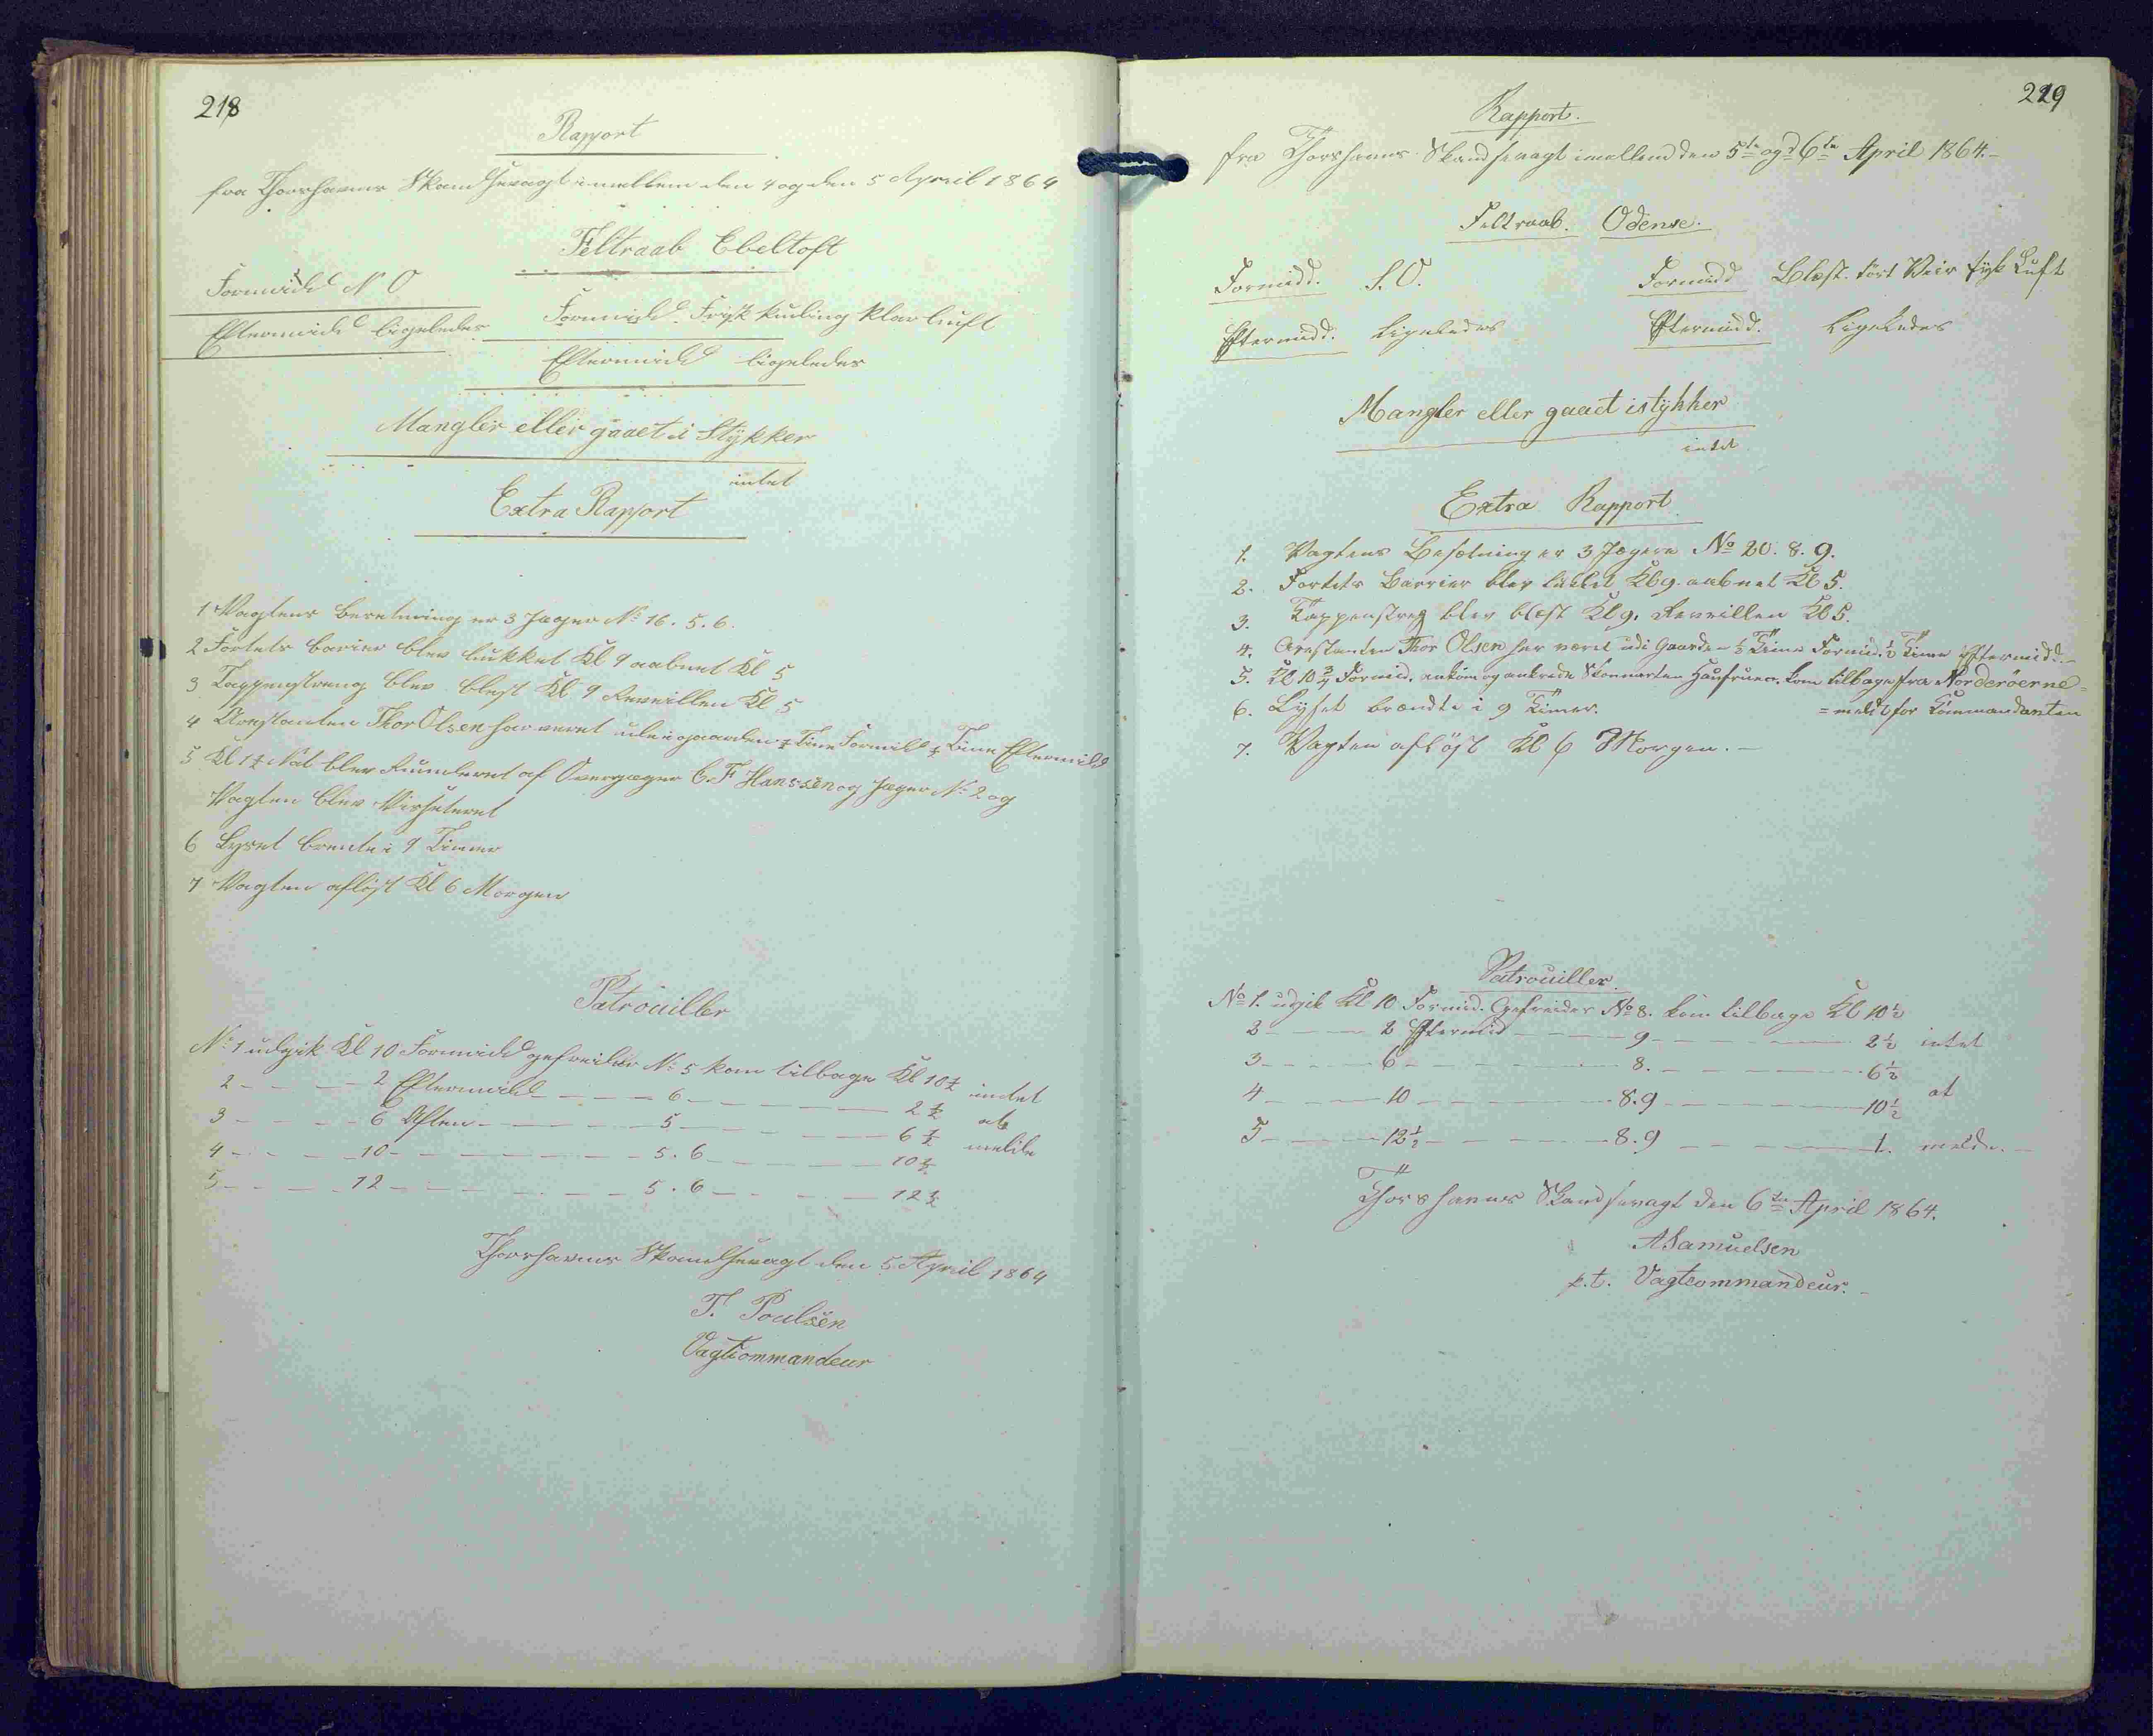 218
Rapport
fra Thorshavns Skandsevagt imellem den 4 og den 5 April 1864
Feltraab Ebeltoft
Formidd N O
Eftermidd ligeledes
Formidd. Frisk kuling klar luft
Eftermidd ligeledes
Mangler eller gaaet i Stykker
intet
Extra Rapport
1 Vagtens besetning er 3 Jæger No 16. 5. 6.
2 Fortets barier blev lukket Kl 9 aabnet Kl 5
3 Tappenstreng blev blest Kl 9 Reveillen Kl 5
4 Arestanten Thor Olsen har veret ude i gaarden ½ Time Formidd ½ Time Eftermidd
5 Kl 1½ Nat blev Runderet af Overjæger C. F Hanssen og Jæger No 2 og
Vagten blev Visiteret
6 Lyset brente i 9 Timer
7 Vagten afløst Kl 6 Morgen
Patrouiller
No 1 udgik Kl 10 Formidd gefreider No 5 kom tilbage Kl 10½ intet
2 - - - - 2 Eftermidd - - - 6 - - - - - 2½ at
3 - - - - 6 Aften - - - - 5 - - - - - 6½ melde
4 - - - - 10 - - - - - - 5. 6 - - - - - 10½
5 - - - - 12 - - - - - - 5. 6 - - - - - 12½
Thorshavns Skandsevagt den 5 April 1864
T. Poulsen
Vagtcommandeur
219
Rapport.
fra Thorshavns Skandsevagt imellem den 5te og d 6te April 1864.-
Feltraab. Odense.
Formidd. S. O. Formidd Blæst. tört Veir tyk Luft
Eftermidd. Ligeledes Eftermidd. Ligeledes
Mangler eller gaaet istykker
intet
Extra Rapport
1. Vagtens Besætning er 3 Jægere No 20. 8. 9.
2. Fortets Barrier blev lukket Kl 9. aabnet Kl 5.
3. Tappenstreg blev blæst Kl 9. Reveillen Kl 5.
4. Arestanten Thor Olsen har været udi Gaarden ½ Time Formid. ½ Time Eftermidd.-
5. Kl 10¾ Formid. ankom og ankrede Skonnerten Haufruen. kom tilbage fra Norderöerne =
= meldt for Commandanten
6. Lyset brændte i 9 Timer.
7. Vagten aflöst Kl 6 Morgen. -
Patrouiller.
No 1. udgik Kl 10 Formid. Gefreider No 8. kom tilbage Kl 10½
2 - - - - 2 Eftermid - - - - 9 - - - - - 2½ intet
3 - - - - 6 - - - - - - 8. - - - - - 6½
4 - - - - 10 - - - - - - 8. 9 - - - - - 10½ at
5 - - - - 12½ - - - - - 8. 9 - - - - - 1. melde. -
Thorshavns Skandsevagt den 6te April 1864.
A Samuelsen
p. t. Vagtcommandeur. -